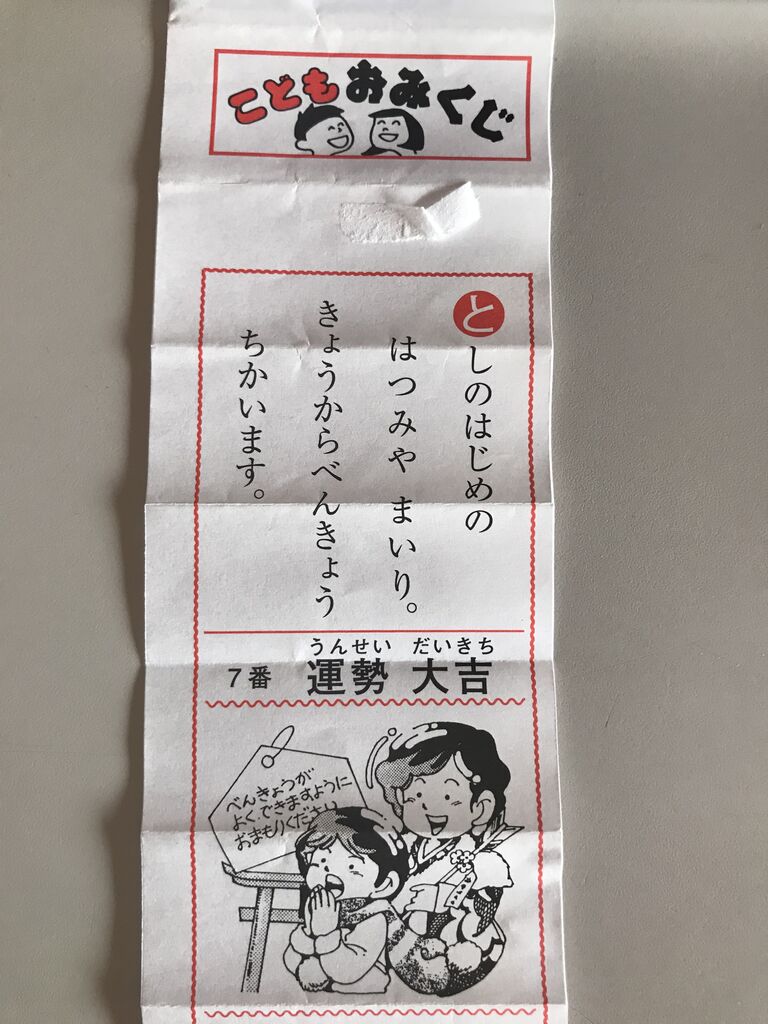 こどもおみくじ
としのはじめの
はつみやまいり。
きょうからべんきょう
ちかいます。
うんせい だいきち
7番 運勢 大吉
べんきょうが
よくできますように
おまもりください